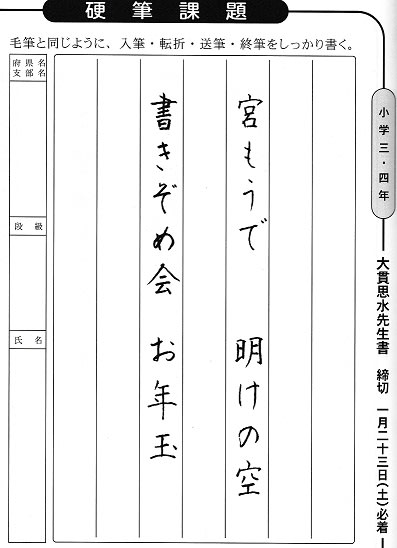 硬筆課題
毛筆と同じように、入筆・転折・送筆・終筆をしっかり書く。
小学三・四年
大貫思水先生書 締切 一月二十三日(土)必着
宮もうで 明けの空
書きぞめ会 お年玉
府県名
支部名
段級
氏名